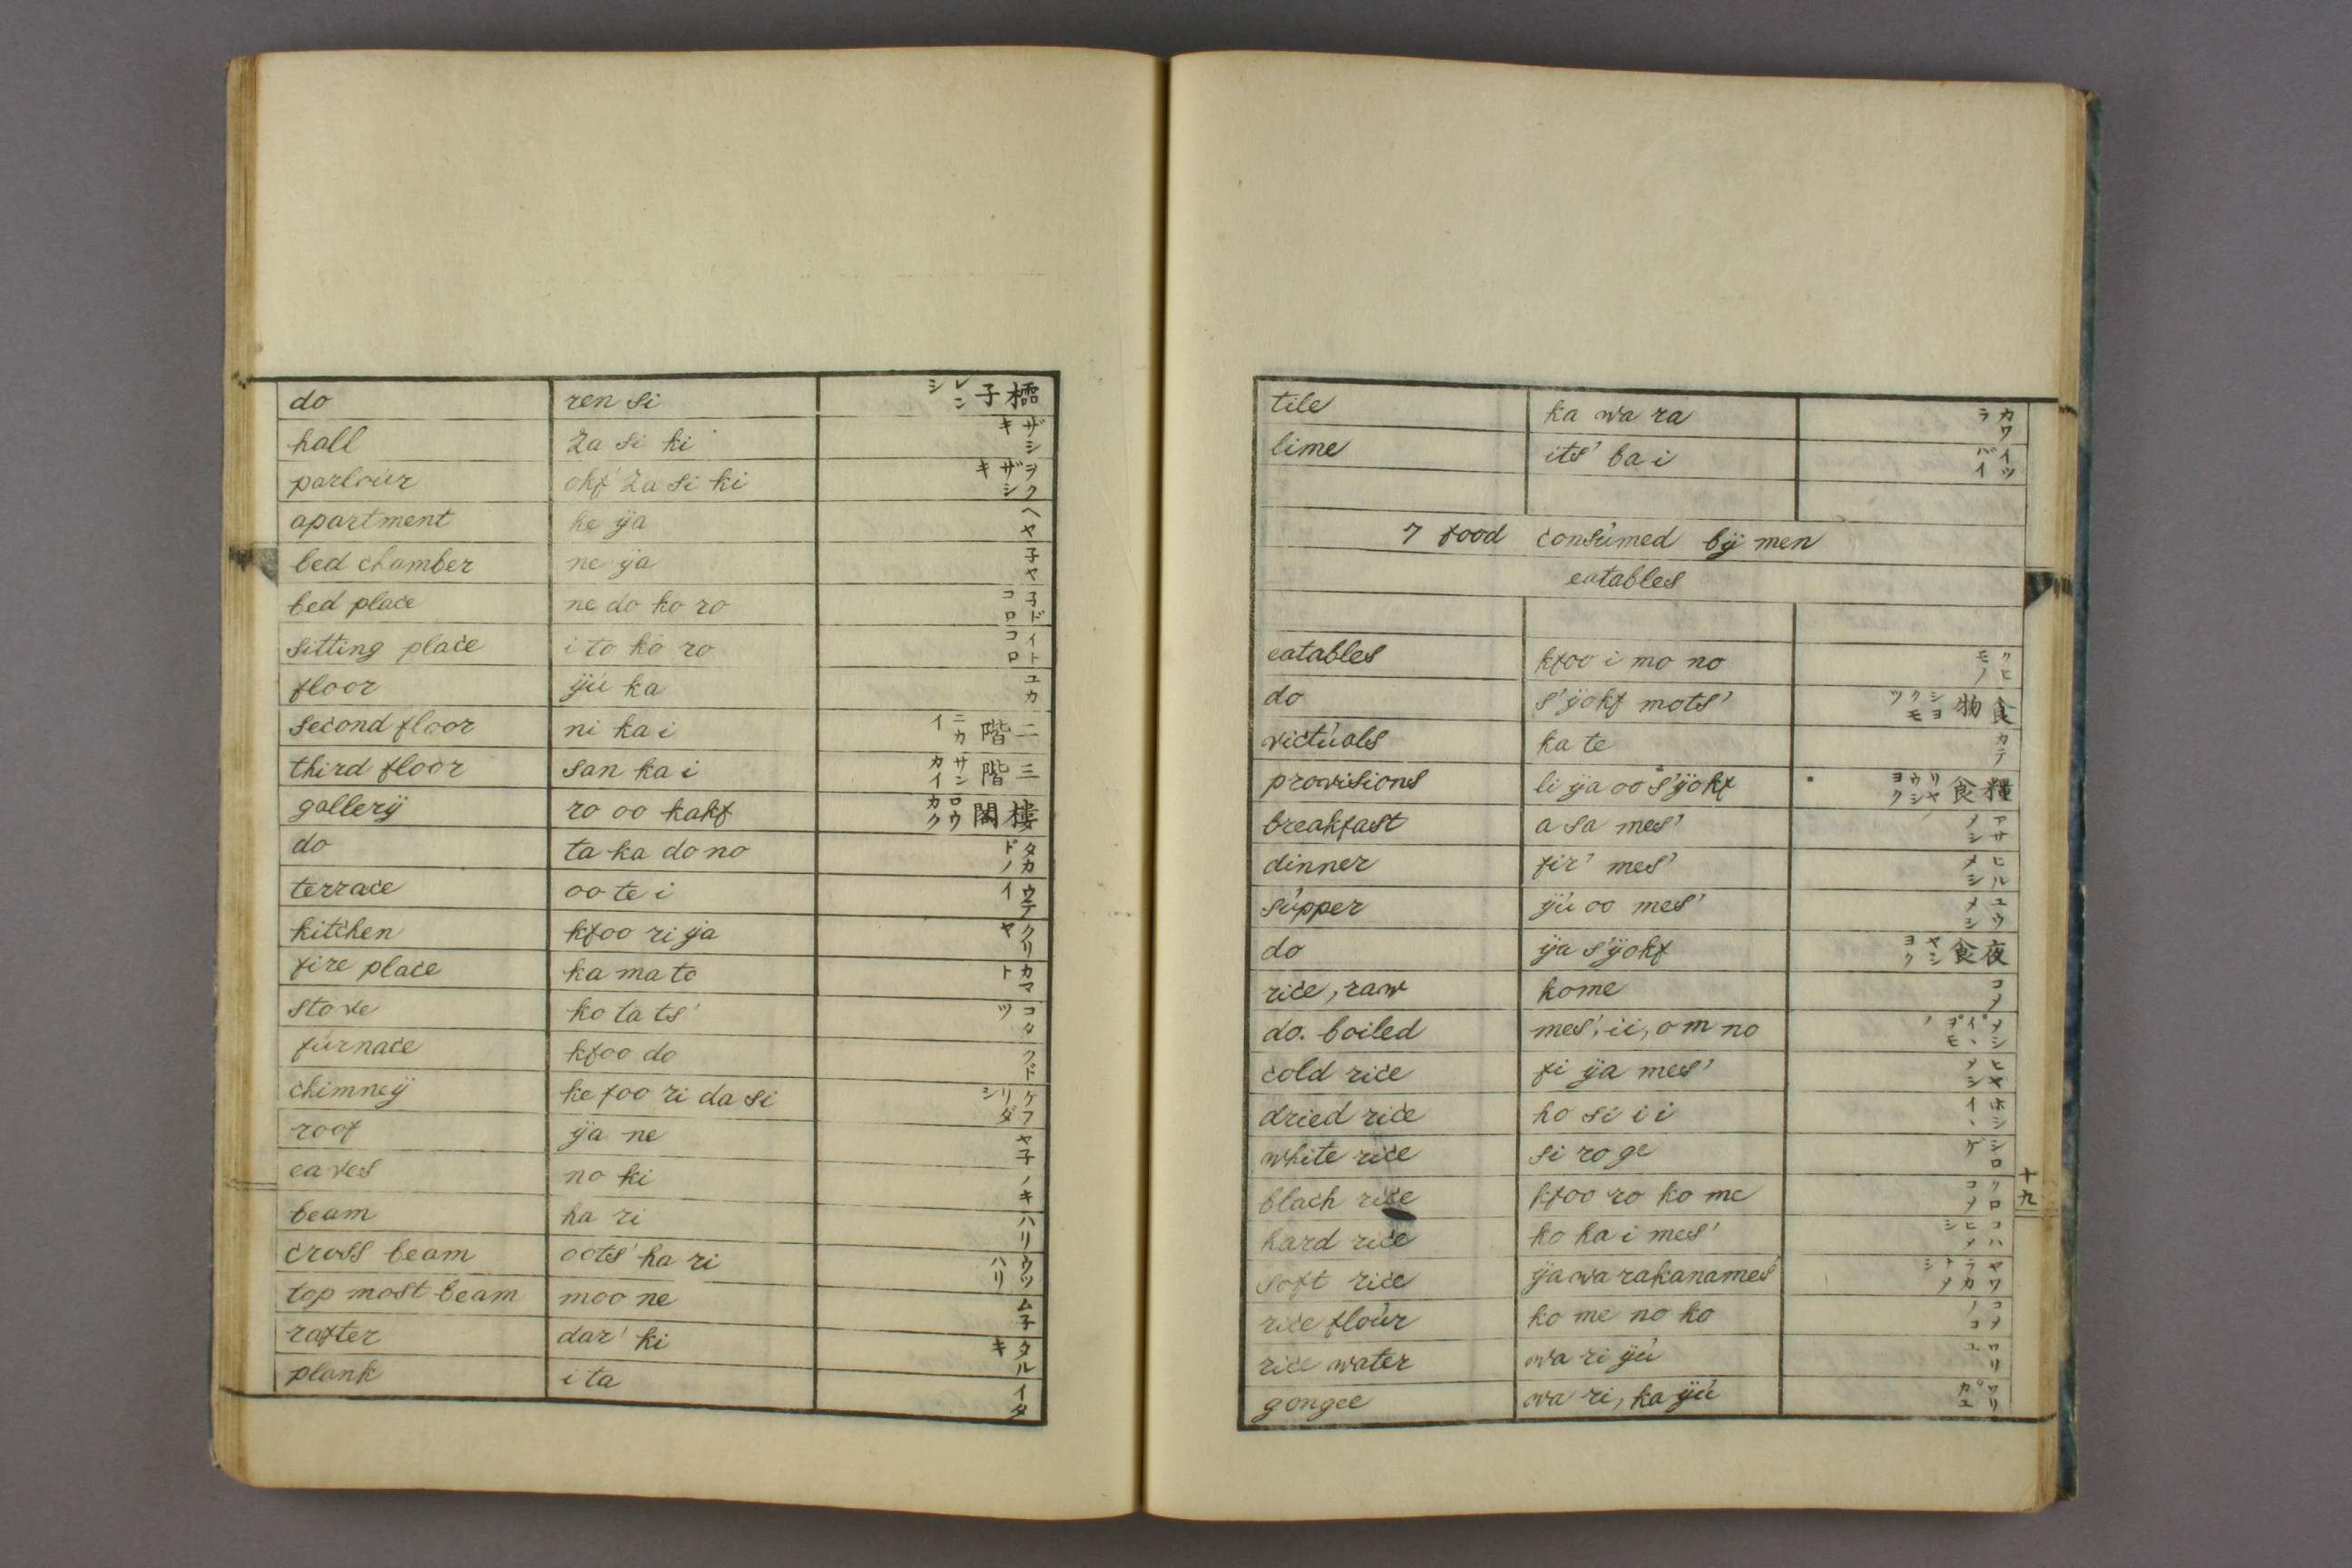 do ren si 櫺子 レンシ
hall za si ki ザシキ
parloúr okf' za si ki ヲクザシキ
apartment he ÿa ヘヤ
bed chamber ne ÿa 子ヤ
bed place ne do ko ro 子ドコロ
sitting place i to ko ro イトコロ
floor ÿú ka ユカ
second floor ni ka i 二階 ニカイ
third floor san ka i 三階 サンカイ
gallerÿ ro oo kakf 樓閣 ロウカク
do ta ka do no タカドノ
terrace oo te i ウテイ
kitchen kfoo ri ÿa クリヤ
fire place ka ma to カマト
stove ko ta ts' コタツ
fúrnace kfoo do クド
chimneÿ ke foo ri da si ケフリダシ
roof ÿa ne ヤ子
eaves no ki ノキ
beam ha ri ハリ
cross beam oots' ha ri ウツハリ
top most beam moo ne ム子
rafter dar' ki タルキ
plank i ta イタ
tile ka wa ra カワラ
lime its' ba i イツバイ
7 food consúmed bÿ men
eatables
eatables kfoo i mo no クヒモノ
do s'ÿokf mots' 食物 シヨクモツ
victúals ka te カテ
provisions li ÿa oo s'ÿokf 糧食 リヤウシヨク
breakfast a sa mes' アサメシ
dinner fir' mes' ヒルメシ
súpper ÿú oo mes' ユウメシ
do ÿa s'ÿokf 夜食 ヤシヨク
rice, raw kome コメ
do. boiled mes', ii, o m no メシ゚イヽ゚ヲモノ
cold rice fi ÿa mes' ヒヤメシ
dried rice ho si i i ホシイヽ
white rice si ro ge シロゲ
blach rice kfoo ro ko me クロコメ
hard rice ko ha i mes' コハヒメシ
soft rice ÿa wa rakanames' ヤワラカナメシ
rice floúr ko me no ko コメノコ
rice water wa ri ÿú ワリユ
gongee wa ri, ka ÿú ワリ゚カユ
十九